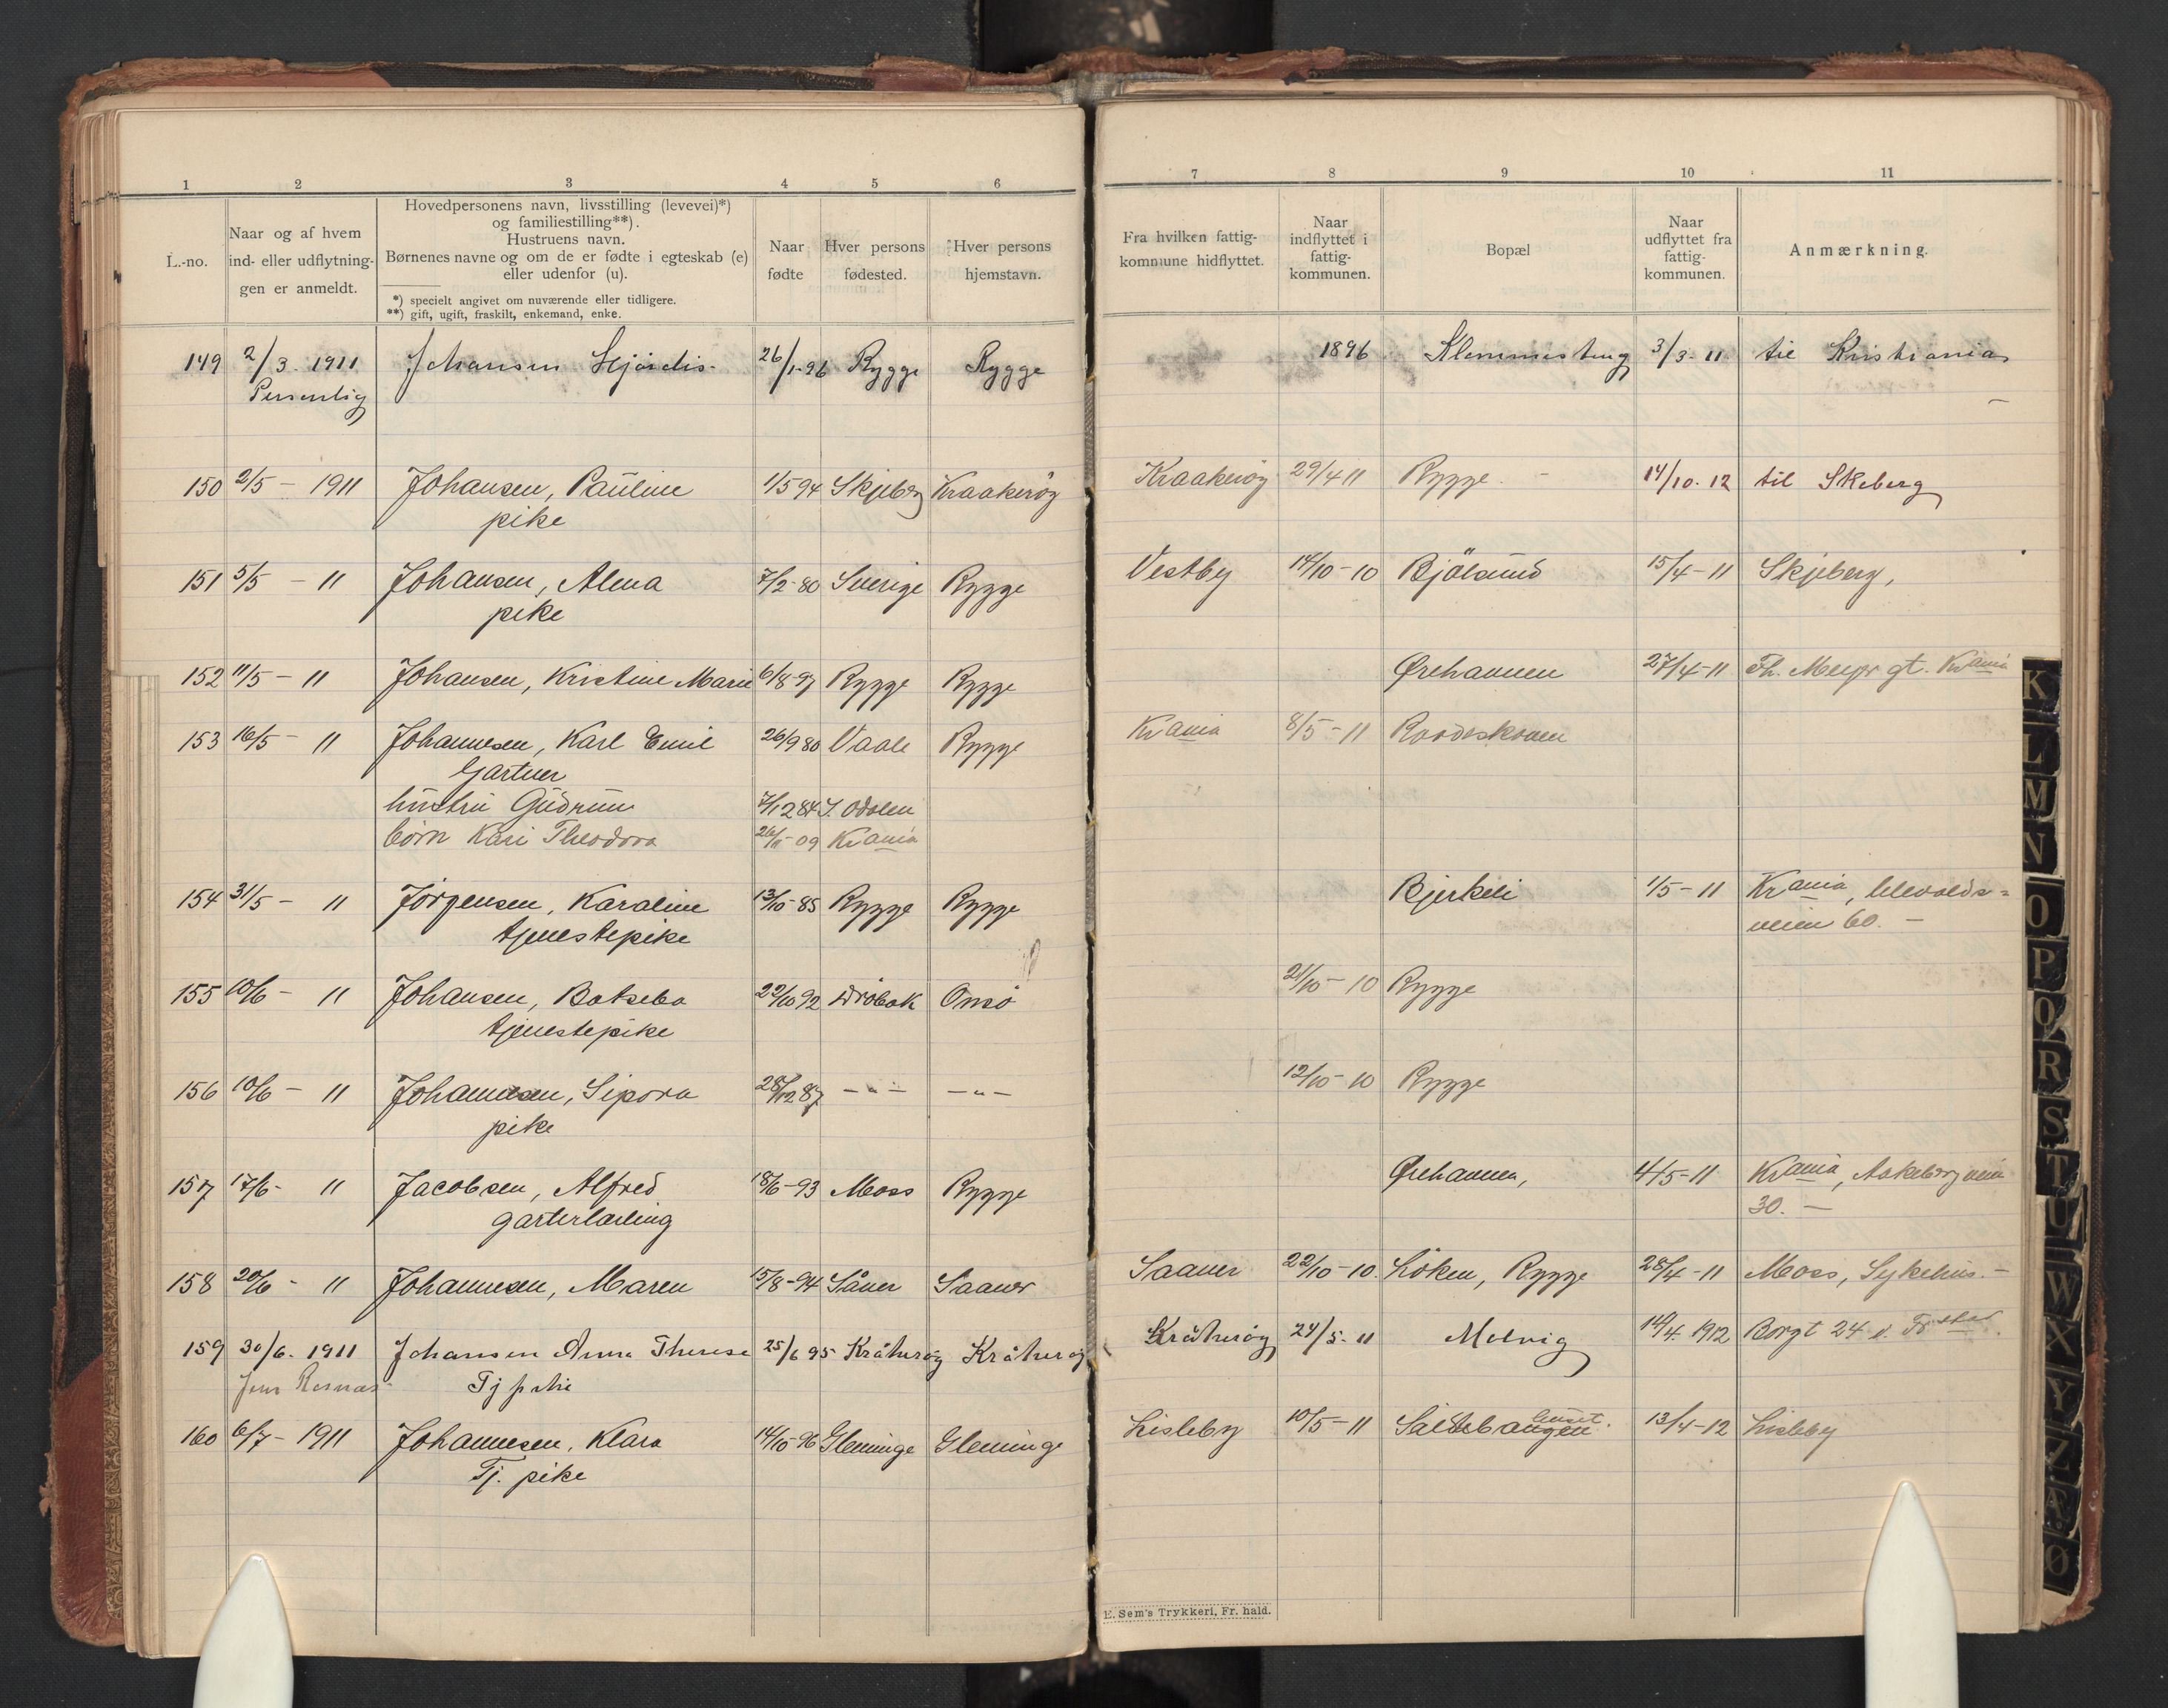 1 2 3 4 5 6 7 8 9 10 11
L.-no.
Naar og af hvem
ind- eller udflytnin-
gen er anmeldt.
Hovedpersonens navn, livsstilling (levevei)*)
og familiestilling**).
Hustruens navn.
Børnenes navne og om de er fødte i egteskab (e)
eller udenfor (u).
*) specielt angivet om nuværende eller tidligere.
**) gift, ugift, fraskilt, enkemand, enke.
Naar
fødte
Hver persons
fødested.
Hver persons
hjemstavn.
Fra hvilken fattig-
kommune hidflyttet.
Naar
indflyttet i
fattig-
kommunen.
Bopæl
Naar
udflyttet fra
fattig-
kommunen.
Anmærkning.
149 2/3. 1911 Johansen Hjördis. 26/1-96 Rygge Rygge 1896 Klommesteng 3/3-11 til Kristiania
Personlig
150 2/5 - 1911 Johansen, Pauline 1/5 94 Skjeberg Kraakeröy Kraakeröy 29/4 11 Rygge. - 14/10-12 til Skeberg
pike
151 5/5 - 11 Johansen, Alma 7/2-80 Sverige Rygge Vestby 14/10-10 Bjölsund 15/4-11 Skjeberg,
pike
152 11/5 - 11 Johansen, Kristine Marie 6/8-97 Rygge Rygge Ørehavnen 27/4-11 Th. Meyer gt. Krania
153 16/5 - 11 Johannesen, Karl Emil 26/9 80 Vaale Rygge Krania 8/5-11
Gartner
hustru Gudrun 7/12 84 S. Odalen
börn Kari Theodora 26/11-09 Krania
154 31/5 - 11 Jörgensen, Karoline 13/10-85 Rygge Rygge Bjerkeli 1/5-11 Krania, Ullevolds-
tjenestepike veien 60. -
155 10/6 - 11 Johansen, Batseba 22/10 92 Dröbak Onsö 21/10-10 Rygge
tjenestepike
156 10/6 - 11 Johannesen, Sipora 28/12 87 - " - - " - 12/10-10 Rygge
pike
157 17/6 - 11 Jacobsen, Alfred 18/6-93 Moss Rygge Ørehavnen, 4/5-11 Krania, Aakebergveien
gartnerlærling 30. -
158 20/6 - 11 Johannesen, Maren 15/8-94 Såner Saaner Saaner 22/10-10. Löken, Rygge 28/4-11 Moss, Sykehus. -
159 30/6. 1911 Johansen Anna Therese 25/6 95 Kråkeröy Kråkeröy Kråkeröy 24/5-11 Melvig 14/4 1912 Borgt 24
Jens Tj pike
160 6/7 - 1911 Johannesen, Klara 14/10-96 Glemminge Glemminge Lisleby 10/5-11 13/4-12 Lisleby
Tj. pike
E. Sem's Trykkeri, Fr. hald.
K
L
M
N
O
P
Q
R
S
T
U
W
X
Y
Z
Æ
Ø